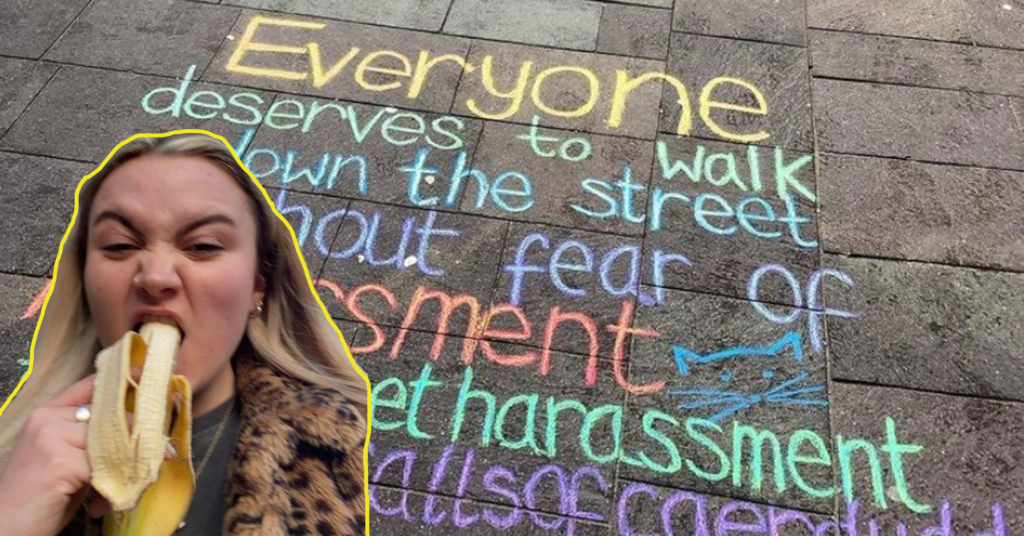 Everyone
deserves to walk
down the street
hout fear of
ssment
etharassment
allsofcaerdydd